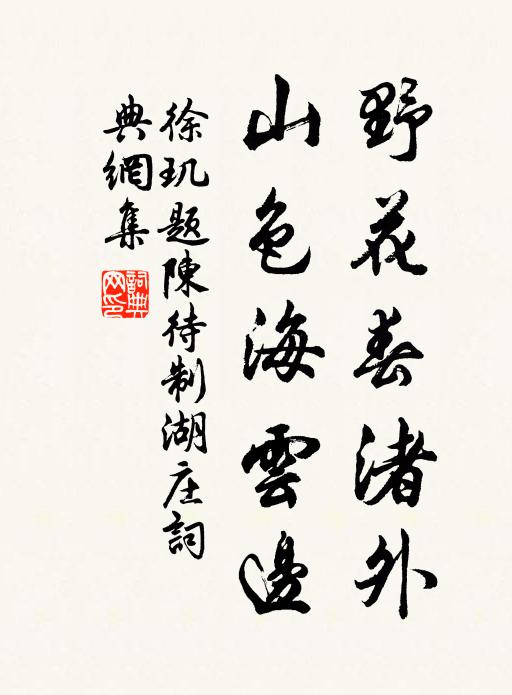 野花春渚外
山色海雲邊
徐玑題陳待制湖庄詞
典網集
詞典網印